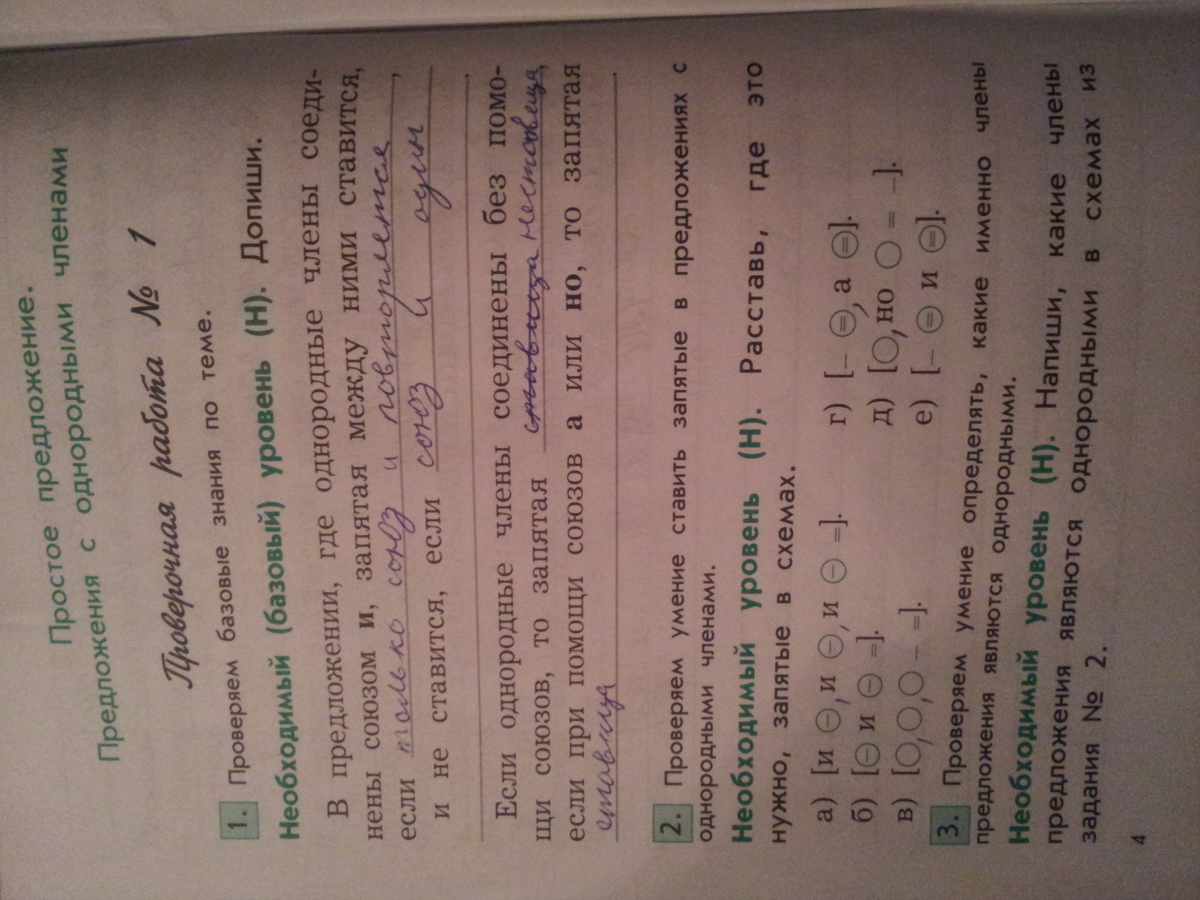 Простое предложение.
Предложения с однородными членами
Проверочная работа № 1
1. Проверяем базовые знания по теме.
Необходимый (базовый) уровень (Н). Допиши.
В предложении, где однородные члены соеди-
нены союзом и, запятая между ними ставится,
если только союз и повторяется,
и не ставится, если союз и один
.
Если однородные члены соединены без помо-
щи союзов, то запятая ставица неставеца,
если при помощи союзов а или но, то запятая
ставица.
2. Проверяем умение ставить запятые в предложениях с
однородными членами.
Необходимый уровень (Н). Расставь, где это
нужно, запятые в схемах.
а) [и ⊖, и ⊖, и ⊖ =].
б) [⊖ и ⊖ =].
в) [○, ○, ○ – =].
г) [– ⊜, а ⊜].
д) [○, но ○ = –].
е) [– ⊜ и ⊜].
3. Проверяем умение определять, какие именно члены
предложения являются однородными.
Необходимый уровень (Н). Напиши, какие члены
предложения являются однородными в схемах из
задания № 2.
4